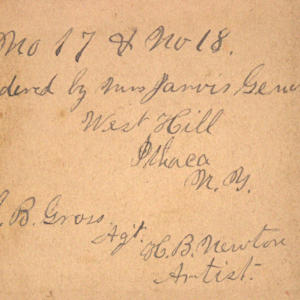 No 17 & No 18.
dered by Mrs Jarvis Genu
West Hill
Ithaca
N. Y.
. B. Gross
Agt.
H. B. Newton
Artist.